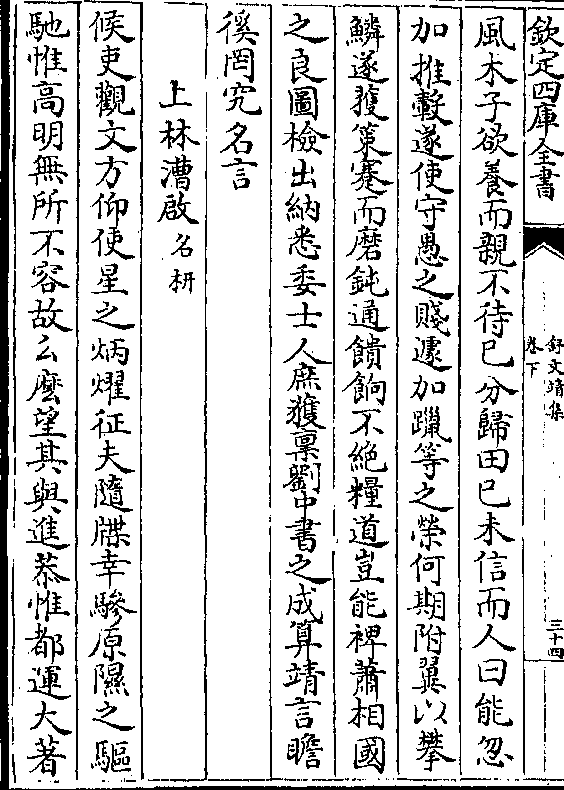 欽定四庫全書
舒文靖集
卷下
三十四
風木子欲養而親不待已分歸田已未信而人曰能忽
加推轂遂使守愚之賤遽加躐等之榮何期附翼以攀
鱗遂獲策蹇而磨鈍通饋餉不絶糧道豈能裨蕭相國
之良圖檢出納悉委士人庶獲稟劉中書之成算靖言瞻
徯罔究名言
上林漕啟名枅
候吏觀文方仰使星之炳燿征夫隨牒幸驂原隰之驅
馳惟高明無所不容故么麽望其與進恭惟都運大著